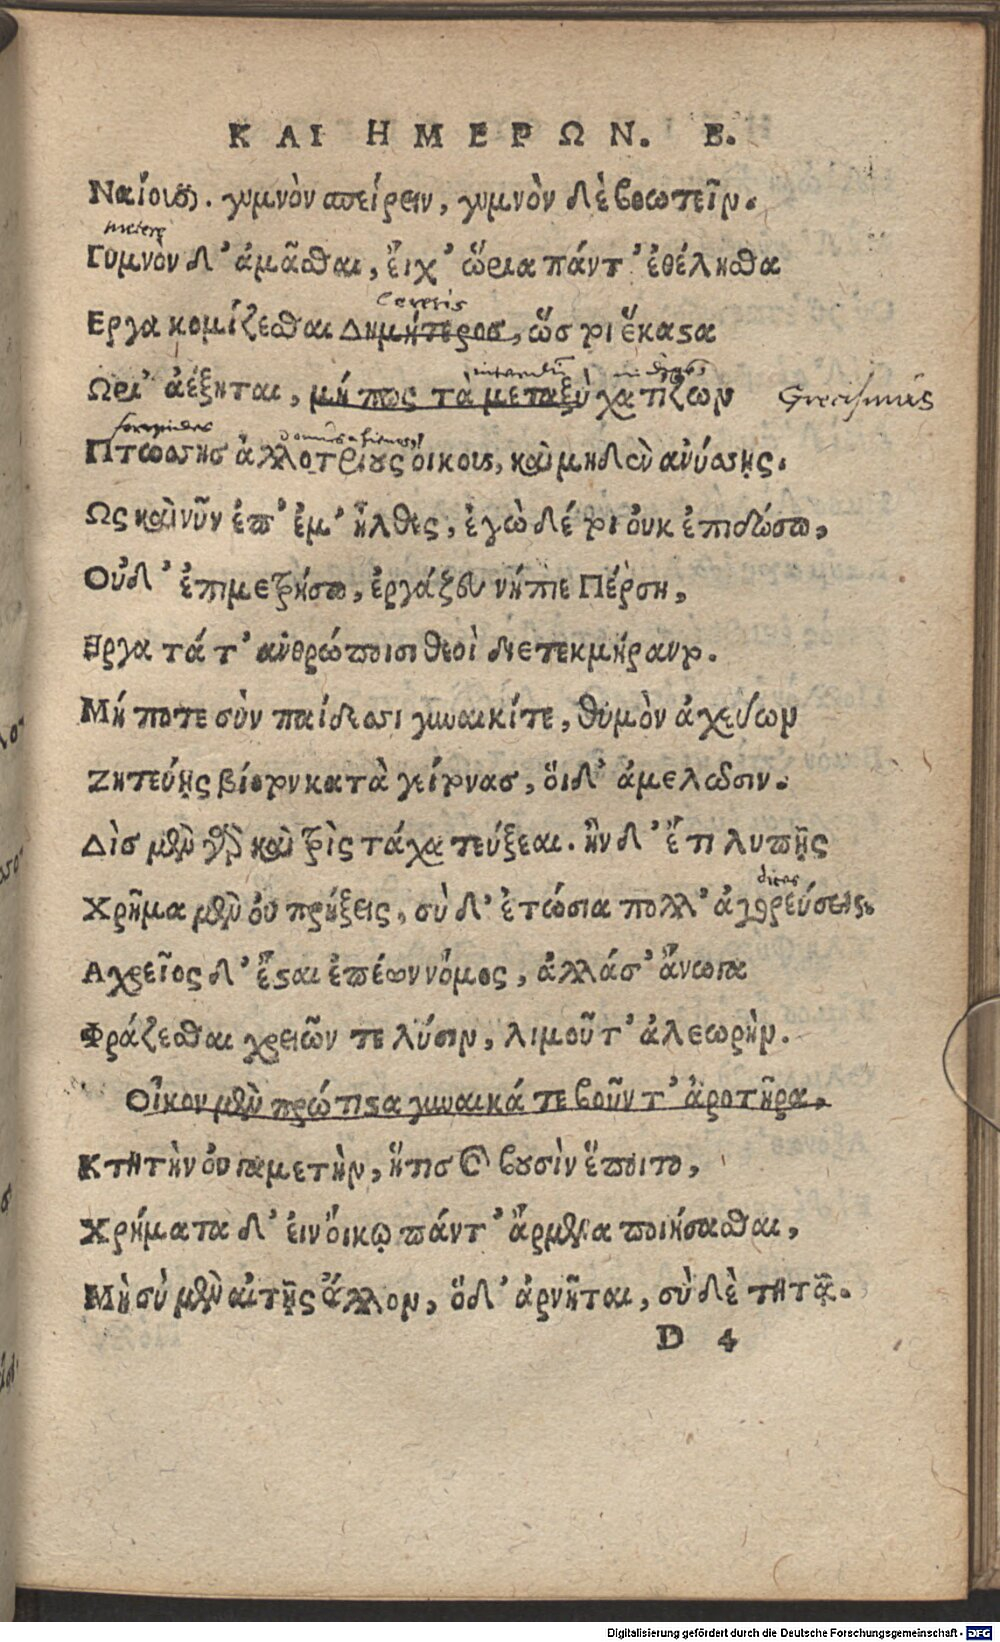 ΚΑΙ ΗΜΕΡΩΝ. Β.
Ναίουσι. γυμνὸν σπείρειν, γυμνὸν δὲ βοωτεῖν.
metere
Γυμνὸν δ' ἀμᾶσθαι, εἴχ' ὥρια πάντ' ἐθέλησθα
Cereris
Εργα κομίζεσθαι Δημήτερος, ὥς τοι ἕκαστα
Ωρι' ἀέξηται, μή πως τὰ μεταξὺ χατίζων Grecismus
Πτώσσης ἀλλοτρίους οἴκους, καὶ μηδὲν ἀνύσσης.
Ως καὶ νῦν ἐπ' ἐμ' ἦλθες, ἐγὼ δέ τοι οὐκ ἐπιδώσω,
Οὐδ' ἐπιμετρήσω, ἐργάζευ νήπιε Πέρση,
Εργα τά τ' ἀνθρώποισι θεοὶ διετεκμήραντο.
Μή ποτε σὺν παίδεσσι γυναικί τε, θυμὸν ἀχεύων
Ζητεύῃς βίοτον κατὰ γείτονας, ὅι δ' ἀμελῶσιν.
Δὶς μὲν γὰρ καὶ τρὶς τάχα τεύξεαι. ἢν δ' ἔτι λυπῇς
dices
Χρῆμα μὲν ὀυ πρήξεις, σὺ δ' ἐτώσια πολλ' ἀγορεύσεις.
Αχρεῖος δ' ἔσται ἐπέων νόμος, ἀλλά σ' ἄνωγα
Φράζεσθαι χρειῶν τε λύσιν, λιμοῦ τ' ἀλεωρὴν.
Οἶκον μὲν πρώτιστα γυναικά τε βοῦν τ' ἀροτῆρα,
Κτητὴν ὀυ γαμετὴν, ἥτις καὶ βουσὶν ἕποιτο,
Χρήματα δ' ἐιν ὄικῳ πάντ' ἄρμενα ποιήσασθαι,
Μὴ σὺ μὲν αἰτῇς ἄλλον, ὅ δ' ἀρνῆται, σὺ δὲ τητᾷ.
D 4
Digitalisierung gefördert durch die Deutsche Forschungsgemeinschaft - DFG